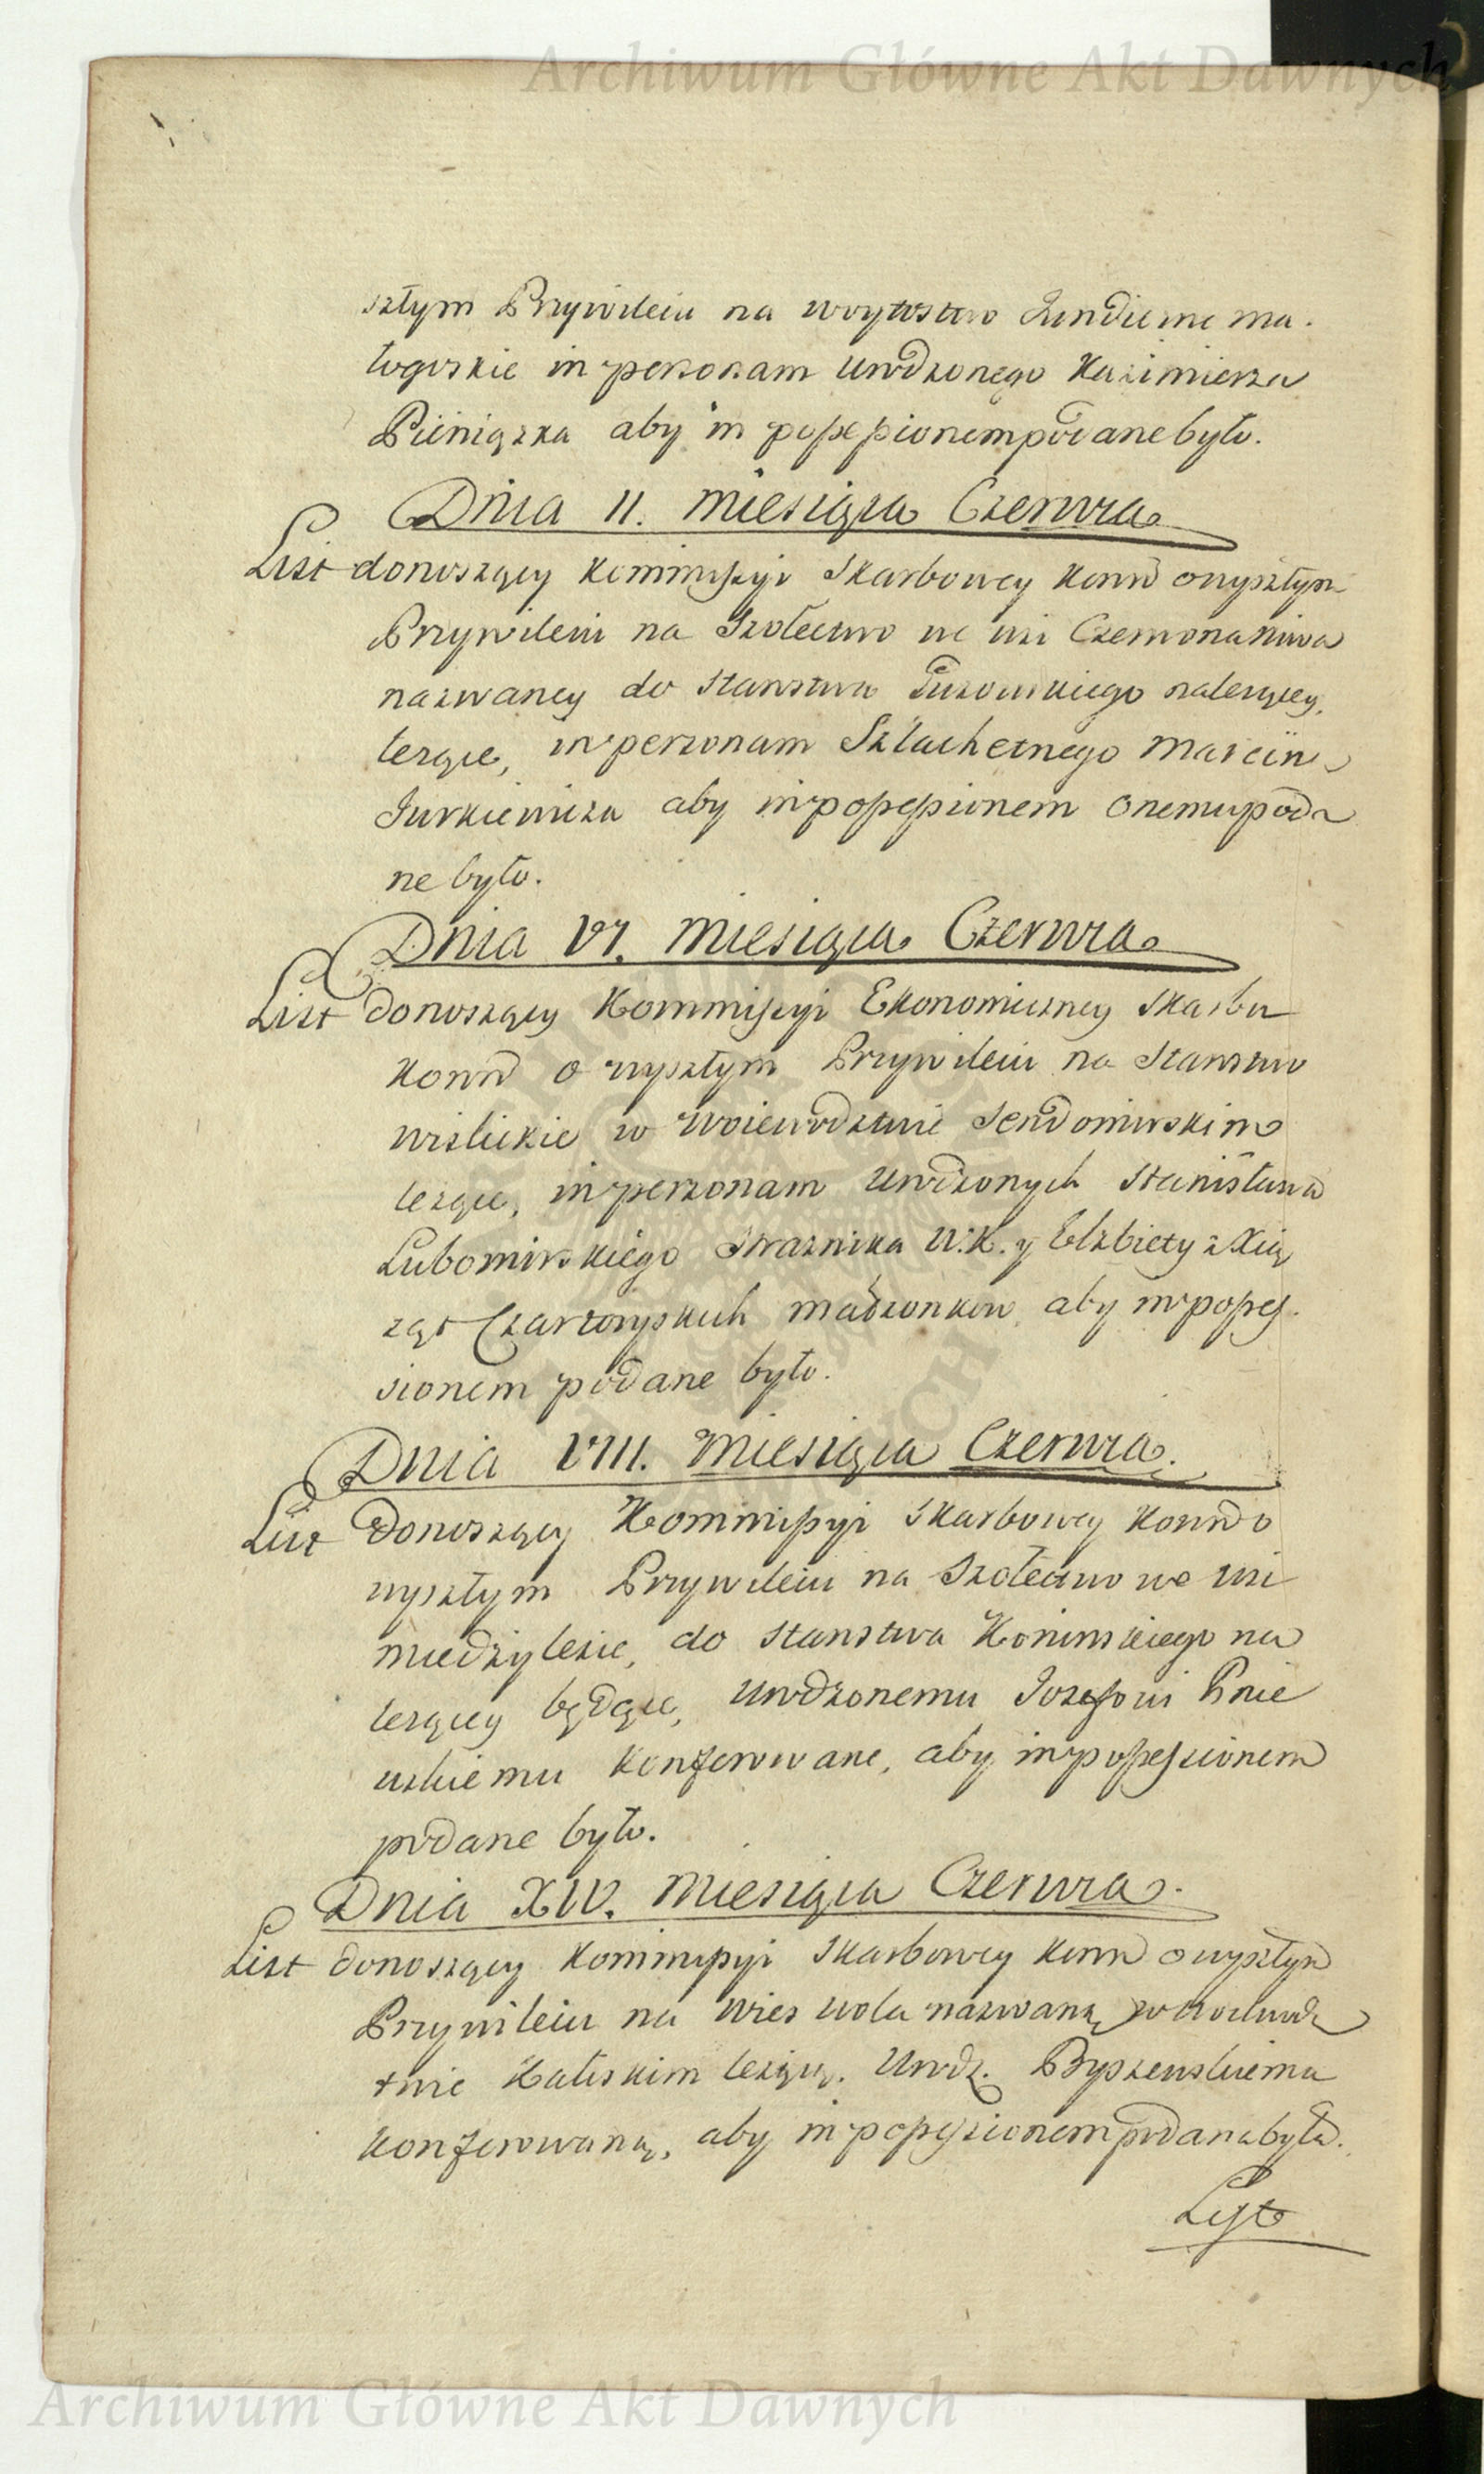 Archiwum Główne Akt Dawnych
szłym Przywileiu na woytostwo
łogoskie in personam Urodzonego Kazimierza
Pieniązka aby in possessionem podane było.
Dnia II. Miesiąca Czerwca
List donoszący Kommissyi Skarbowey Koron o wyszłym
Przywileiu na Szołectwo we wsi
nazwaney do Starostwa należącey,
leżące, in personam Szlachetnego Marcina
Jurkiewicza aby in possessionem onemu poda
ne było.
Dnia VI. Miesiąca Czerwca
List donoszący Kommissyi Ekonomiczney Skarbu
Koron o wyszłym Przywileiu na Starostwo
Wislickie w Woiewodztwie Sendomirskim
leżące, in personam Urodzonych Stanisława
Lubomirskiego Strażnika W.K. y Elżbiety z Xią
żąt Czartoryskich małżonkow, aby in posses.
sionem podane było.
Dnia VIII. Miesiąca Czerwca.
List Donoszący Kommissyi Skarbowey Koron o
wyszłym Przywileiu na Szołectwo we wsi
miedzylesie, do Starostwa Koninskiego na
leżącey będące, Urodzonemu Jozefowi Pnie
wskiemu konferowane, aby in possessionem
podane było.
Dnia XIV. Miesiąca Czerwca.
List donoszący Kommissyi Skarbowey Koron o wyszłym
Przywileiu na Wies Wola nazwaną w Woiewodz
twie Kaliskim leżącą, Urodz. Byszewskiemu
konferowaną, aby in possessionem podana była.
Lyst
Archiwum Główne Akt Dawnych